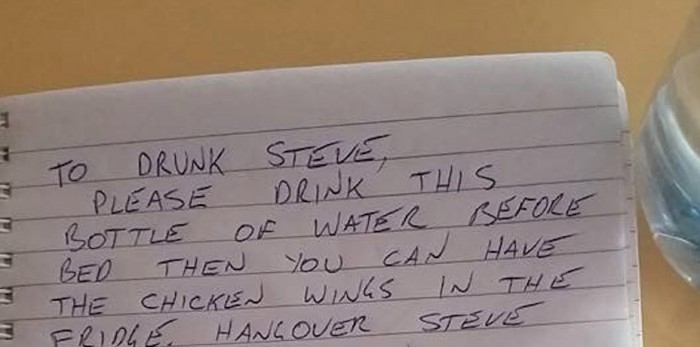 TO DRUNK STEVE,
PLEASE DRINK THIS
BOTTLE OF WATER BEFORE
BED THEN YOU CAN HAVE
THE CHICKEN WINGS IN THE
FRIDGE. HANGOVER STEVE